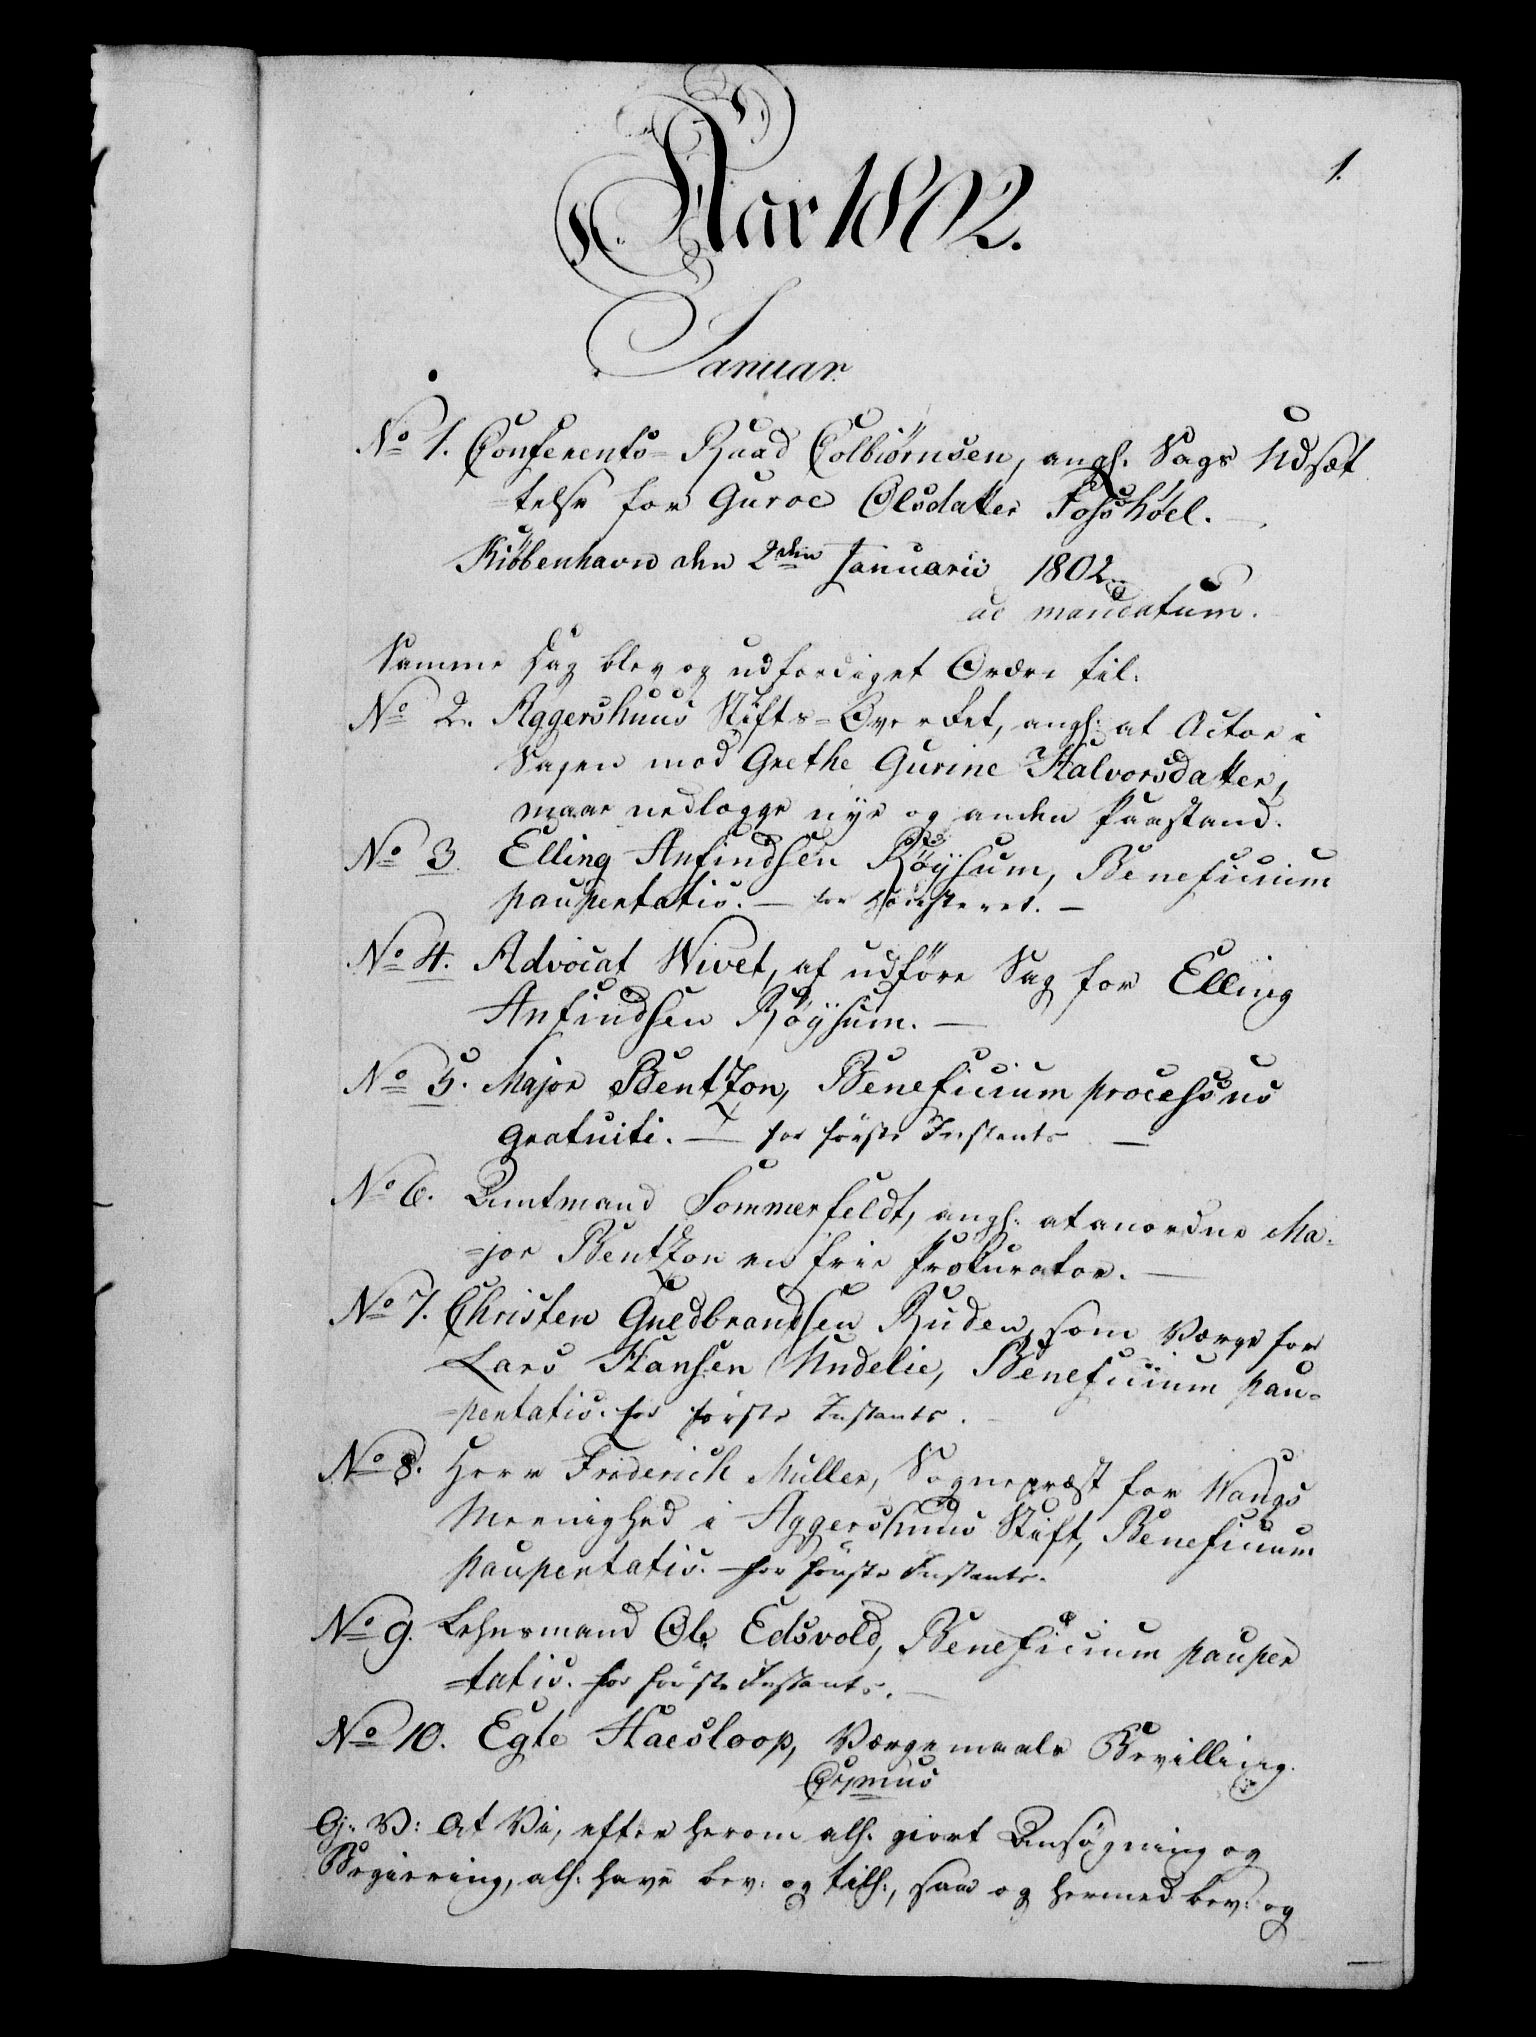 1.
Aar 1802.
Januar.
No 1. Conferents-Raad Colbiørnsen, angl. Sags Udsæt
=telse for Guroe Olsdatter Fosshöel.
Kiöbenhavn den 2den Januarii 1802.
ad mandatum.
Samme Dag blev og udfærdiget Ordre til:
No 2. Aggershuus Stifts-Øvrighed, angl: at Actor i
Sagen mod Grethe Gurine Halvorsdatter,
maae nedlægge nye og anden Paastand.
No 3 Elling Anfindsen Röysum, Beneficium
paupertatis. — for Höiesteret. —
No 4. Advocat Wivet, at udföre Sag for Elling
Anfindsen Röysum. —
No 5. Major Bentzon, Beneficium processus
gratuiti. — for förste Instants —
No 6. Amtmand Sommerfeldt, angl: at anordne Ma-
=jor Bentzon en frie Prokurator. —
No 7. Christen Guldbrandsen Ruden, som Værge for
Lars Hansen Undelie, Beneficium pau-
=pertatis. for förste Instants. —
No 8. Herr Friderich Müller, Sognepræst for Wangs
Meenighed i Aggershuus Stift, Beneficium
paupertatis. — for förste Instants.
No 9. Lehnsmand Ole Edsvold, Beneficium pauper
=tatis. for förste Instants. —
No 10. Egte Haesloop, Værgemaals Bevilling.
G: V: At Vi, efter herom all. giort Ansögning og
Begiering, all. have bev: og till:, saa og hermed bev: og